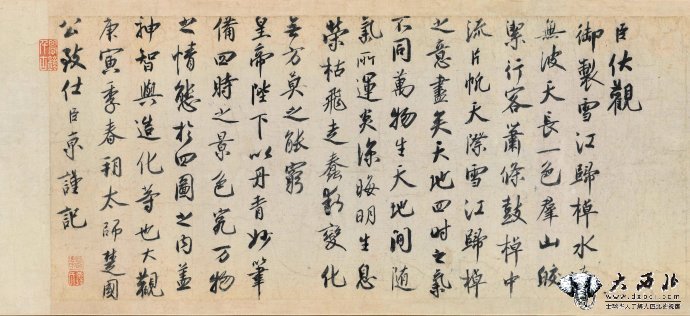 臣伏觀
御製雪江歸棹水遠
無波天長一色羣山皎
潔行客蕭條鼓棹中
流片帆天際雪江歸棹
之意盡矣天地四時之氣
不同萬物生天地間隨
氣所運炎涼晦明生息
榮枯飛走蠢動變化
无方莫之能窮
皇帝陛下以丹青妙筆
備四時之景色究万物
之情態於四圖之内蓋
神智與造化等也大觀
庚寅季春朔太師楚國
公致仕臣京謹記
大西北